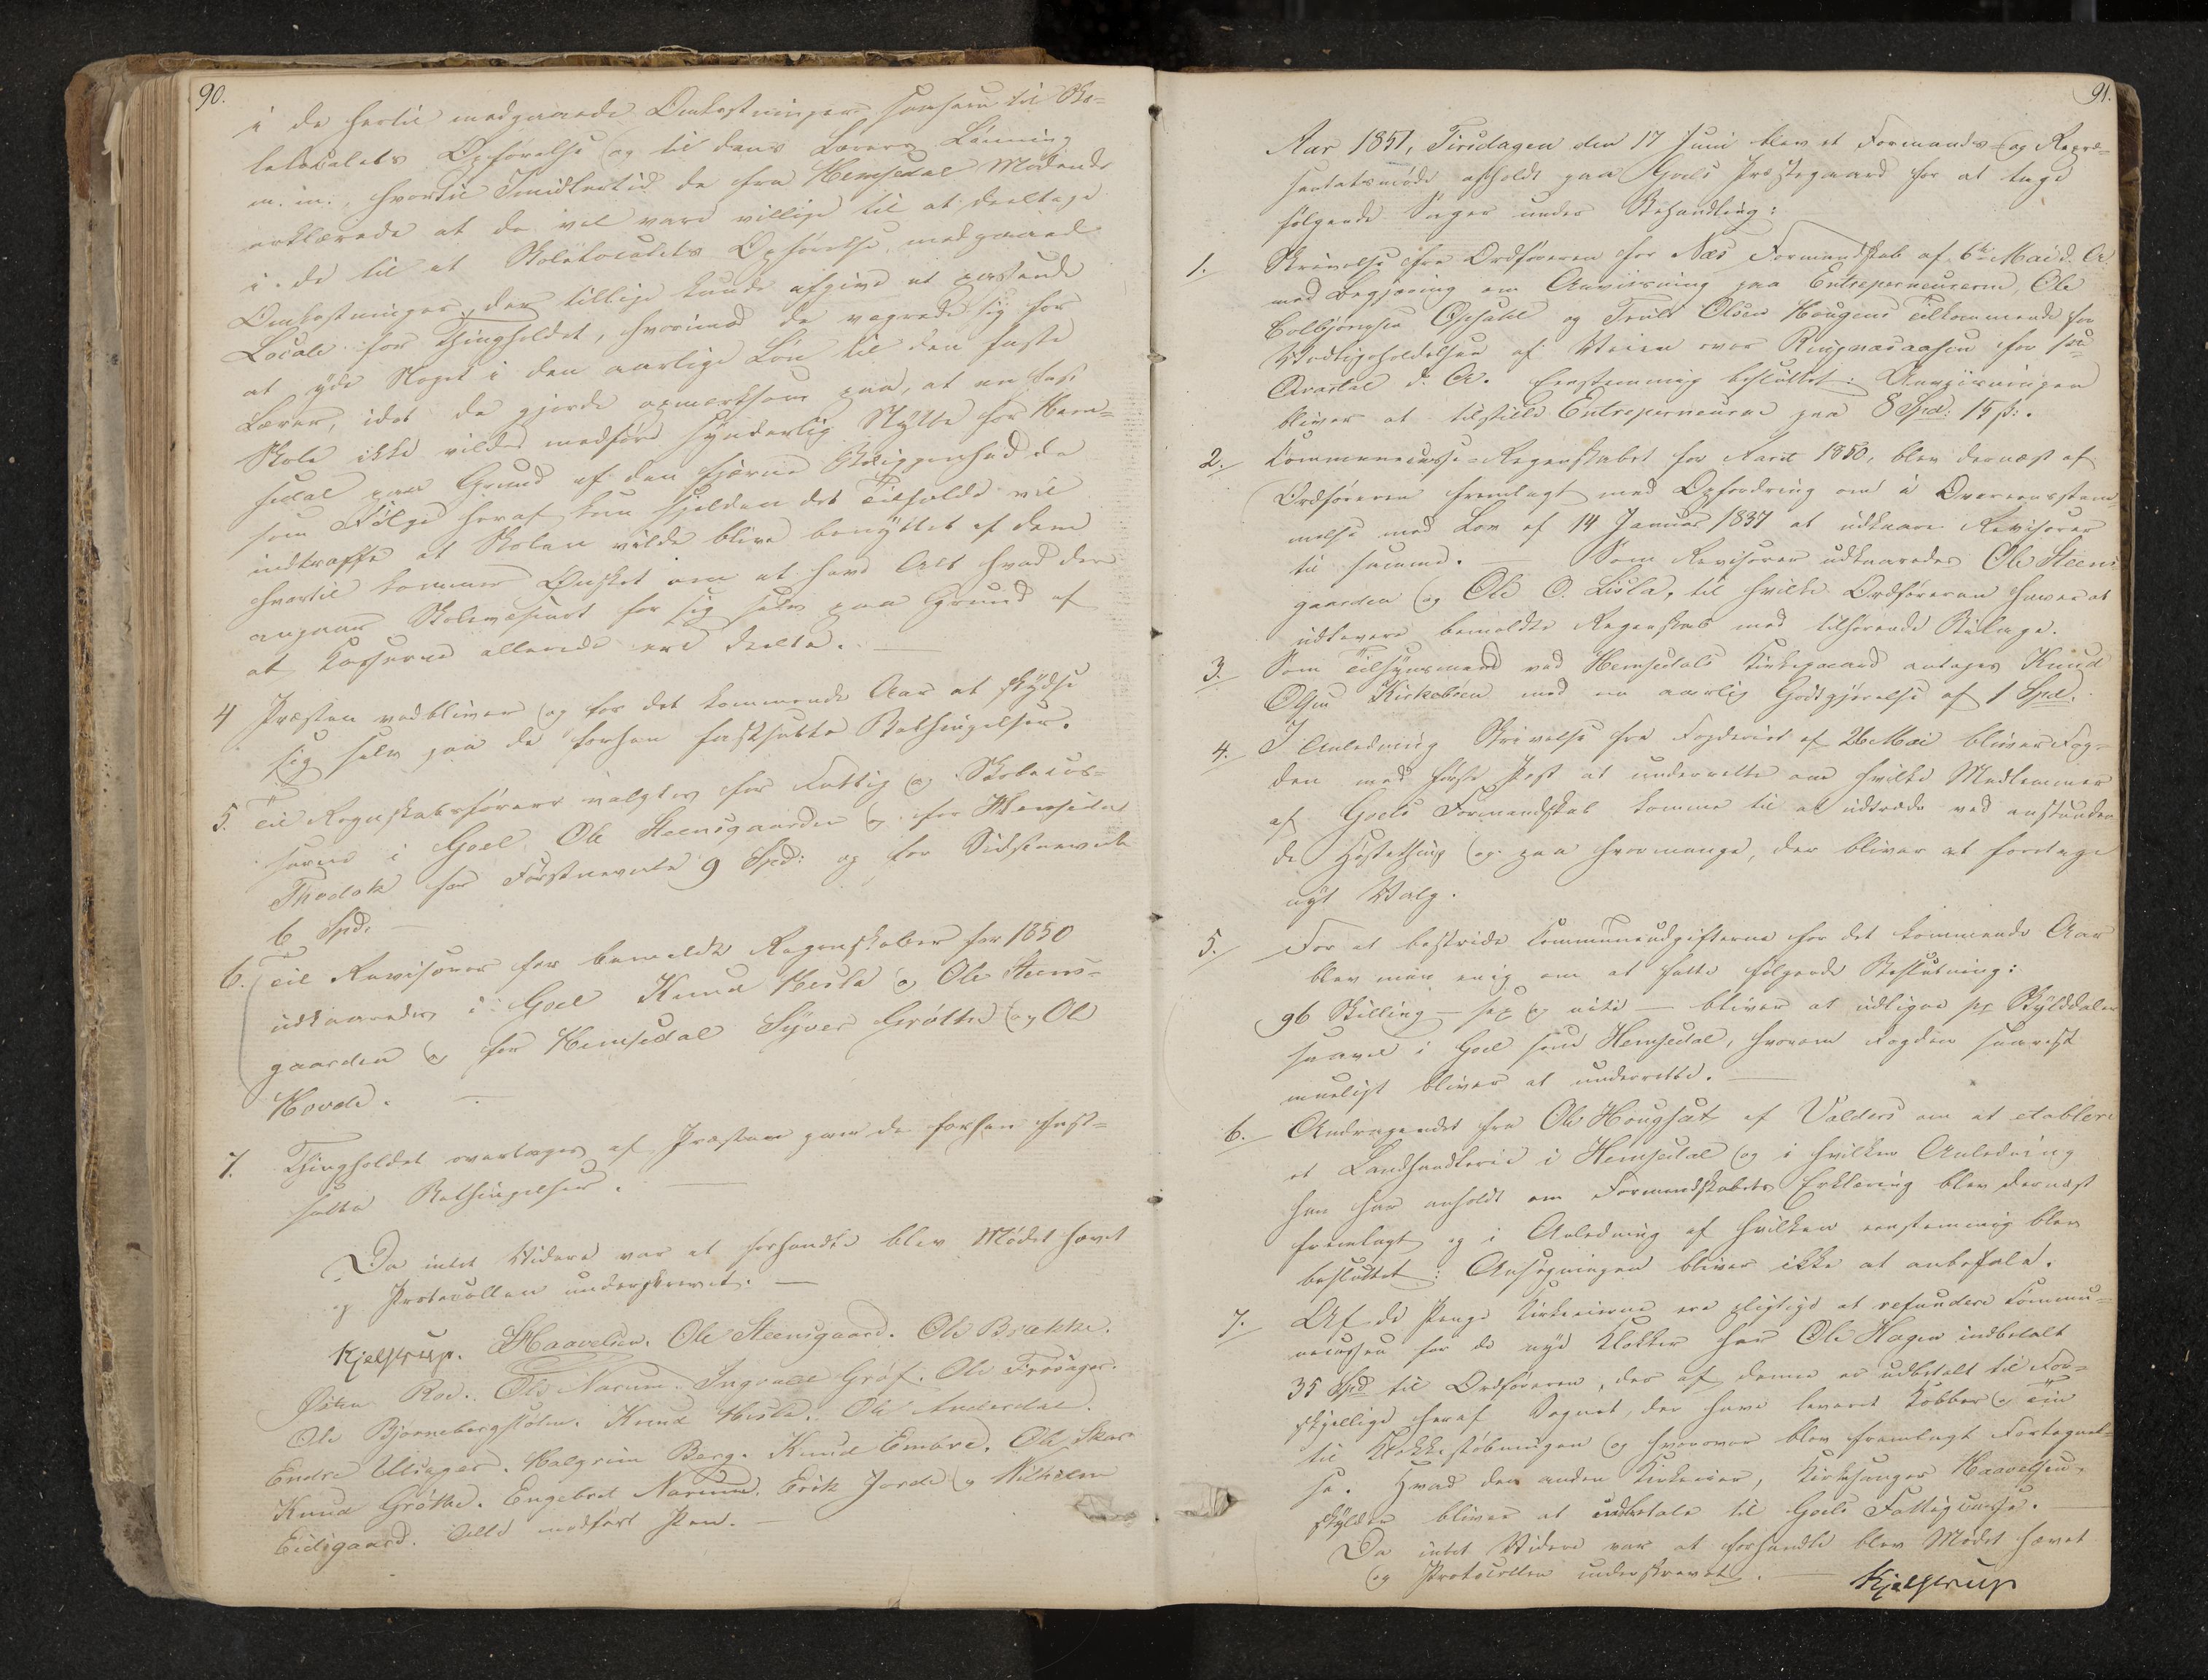 90.
i de hertil medgaaede Omkostninger saavel til Sko-
lelocalets Opførelse og til dens Lærers Lønning
m. m., hvortil Imidlertid de fra Hemsedal Mødende
erklærede at de vel vare villige til at deeltage
i de til et Skolelocalets Opførelse medgaaed
Omkostninger, der tillige kunde afgive et passende
Locale for Thingholdet, hvorimod de vægrede sig for
at yde Noget i den aarlige Løn til den faste
Lærer, idet de gjorde opmærksom paa, at en fast
Skole ikke vilde medføre synderlig Nytte for Hem-
sedal paa Grund af den fjærne Beliggenhed da
som Følge heraf kun sjelden det Tilfælde vil
indtræffe at Skolen vilde blive benyttet af dem
hvortil kommer Ønsket om at have Alt hvad der
angaar Skolevæsenet for sig selv paa Grund af
at Kasserne allerede ere deelte. —
4 Præsten vedbliver og for det kommende Aar at skydse
sig selv paa de forhen fastsatte Betingelser.
5. Til Regnskabsførere valgtes for Fattig og Skolecas-
serne i Goel Ole Steensgaarden og for Hemsedal
Thodok for Førstnevnte 9 Spd: og for Sidstnevnte
6 Spd. —
6. Til Revisorer for bemeldte Regnskaber for 1850
udkaaredes i Goel Knud Hesla og Ole Steens-
gaarden og for Hemsedal Syver Grøtte og Ole
Hovde. —
7. Thingholdet overtages af Præsten paa de forhen fast-
satte Betingelser. —
Da intet Videre var at forhandle blev Mødet hævet
og Protocollen underskrevet. —
Kjelstrup. Haavelsen. Ole Steensgaard. Ole Brække.
Østen Roe. Ole Narum. Ingvald Gröf. Ole Frøsager.
Ole Bjørnebergstølen. Knud Hesla. Ole Anderdal.
Endre Ulsager. Halgrim Berg. Knud Embre. Ole Skare
Knud Grøtte. Engebret Narum. Erik Jorde og Wilhelm
Eidsgaard. Alle medført Pen. —
91.
Aar 1851, Tirsdagen den 17 Juni blev et Formands- og Repræ-
sentatsmøde afholdt paa Goels Præstegaard for at tage
følgende Sager under Behandling:
1. Skrivelse fra Ordføreren for Næs Formandskab af 6te Mai d. A.
med Begjæring om Anviisning paa Entrepreneurerne, Ole
Colbjørnsen Opsahl og Truls Olsen Hougens Tilkommende for
Vedligeholdelsen af Veien over Ringnæsaasen for 1ste
Qvartal d. A. Eenstemmig besluttet: Anviisningen
bliver at tilstille Entreprenneurerne paa 8 Spd: 15 s:.
2. Communecasse-Regnskabet for Aaret 1850, blev dernæst af
Ordføreren fremlagt med Opfordring om i Overeensstem-
melse med Lov af 14 Januar 1837 at udkaare Revisorer
til samme. — Som Revisorer udkaaredes Ole Steens-
gaarden og Ole O. Lisla, til hvilke Ordføreren haver at
udlevere bemeldte Regnskab med tilhørende Bilage.
3. Som Tilsynsmand ved Hemsedals Kirkegaard antages Knud
Olsen Kirkebøen med en aarlig Godtgjørelse af 1 Spd.
4. I Anledning Skrivelse fra Fogderiet af 26 Mai bliver Fog-
den med første Post at underrette om hvilke Medlemmer
af Goels Formandskab komme til at udtræde ved anstunden-
de Høstething og paa hvormange, der bliver at foretage
nyt Valg.
5. For at bestride Communeudgifterne for det kommende Aar
blev man enig om at fatte følgende Beslutning:
96 Skilling — sex og niti — bliver at udligne pr Skylddaler
saavel i Goel som Hemsedal, hvorom Fogden snarest
mueligt bliver at underrette. —
6. Andragendet fra Ole Hougsut af Valders om at etablere
et Landhandlerie i Hemsedal og i hvilken Anledning
han har anholdt om Formandskabets Erklæring blev dernæst
fremlagt og i Anledning af hvilken eenstemmig blev
besluttet: Ansøgningen bliver ikke at anbefale.
7. Af de Penge Kirkeeierne ere pligtige at refundere Commu-
necassen for de nye Klokker har Ole Hagen indbetalt
35 Spd til Ordføreren, der af denne er udbetalt til For-
skjellige heraf Sognet, der have leveret Kobber og Tin
til Klokkestøbningen og hvorover blev fremlagt Fortegnel-
se. Hvad den anden Kirkeeier, Kirkesanger Haavelsen,
skylder bliver at indbetale til Goels Fattigcasse. —
Da intet Videre var at forhandle blev Mødet hævet
og Protocollen underskrevet. — Kjelstrup